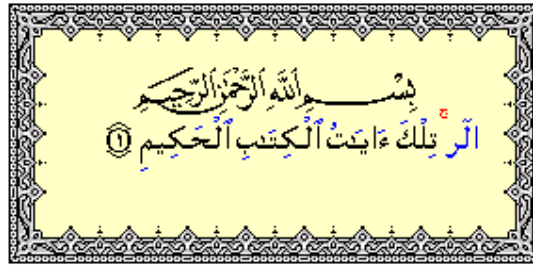 بِسْمِ ٱللَّهِ ٱلرَّحْمَٰنِ ٱلرَّحِيمِ
الٓر ۚ تِلْكَ ءَايَٰتُ ٱلْكِتَٰبِ ٱلْحَكِيمِ ١